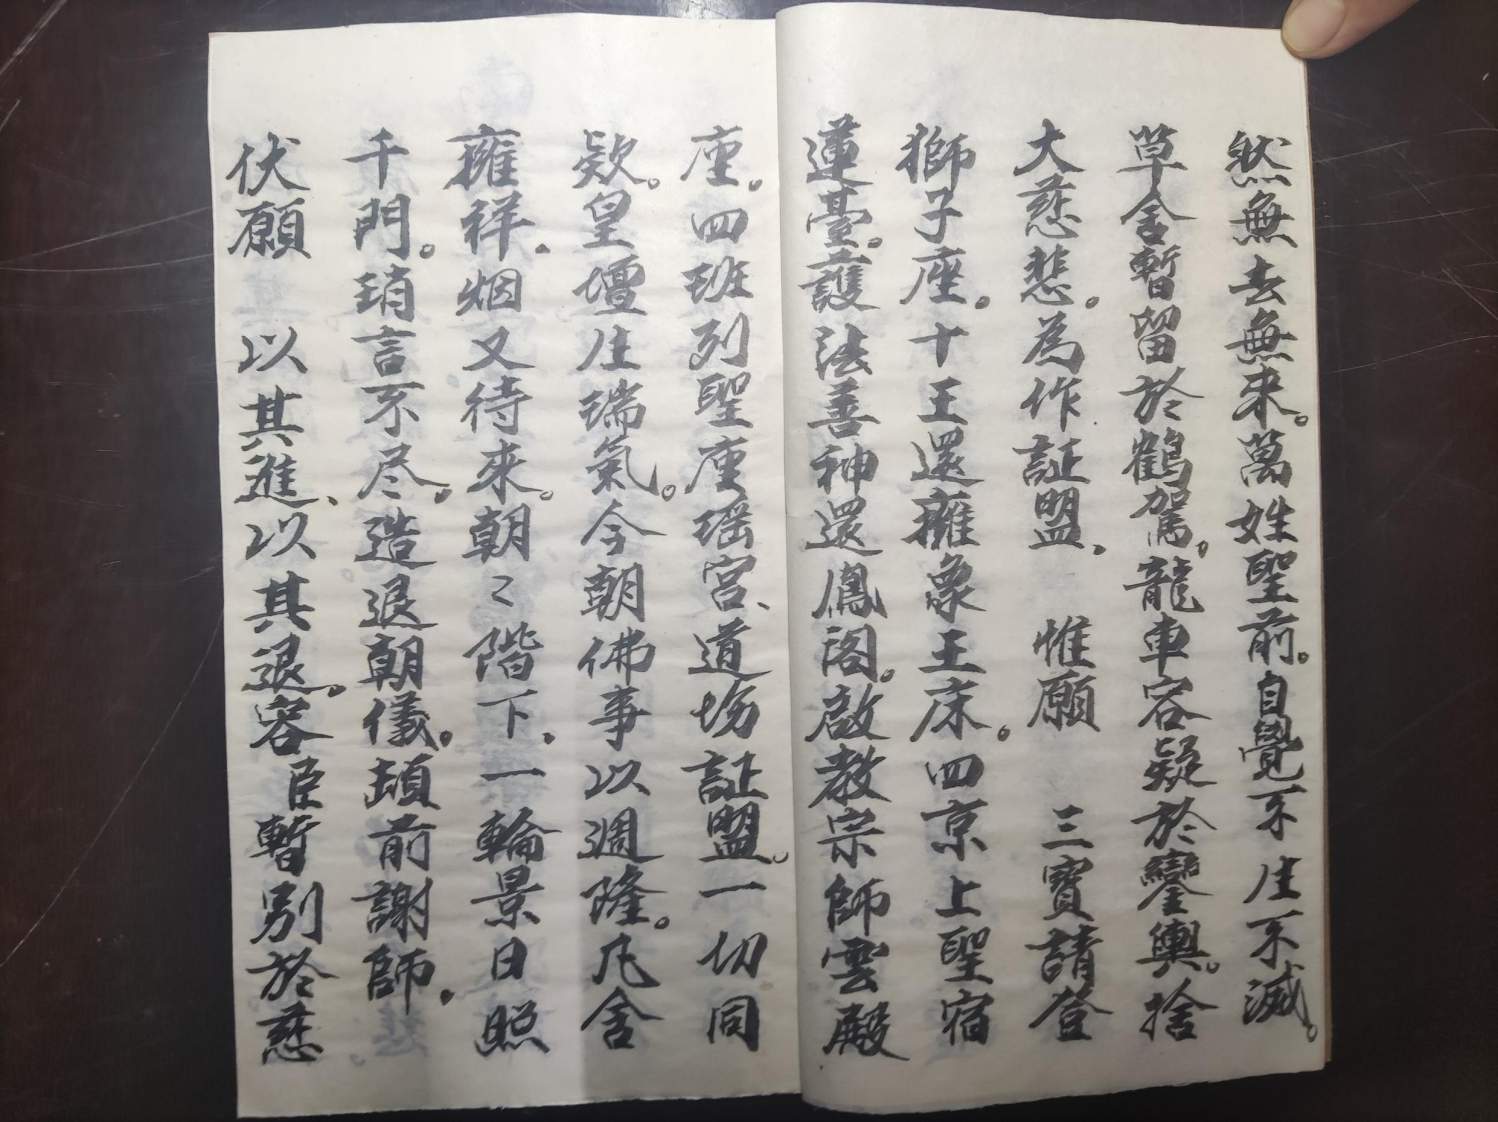 然無去無来。萬姓聖前。自覺不生不滅。
草舍暫留於鶴駕。龍車容疑於鑾輿。捨
大慈悲。為作証盟。　惟願　三寶請登
獅子座。十王還擁象王床。四京上聖宿
蓮臺。護法善神還鳳閣。啟教宗師雲殿
座。四班列聖座瑶宫、道場証盟。一切同
欵。皇壇生瑞氣。今朝佛事以週隆。凡舍
擁祥。烟又待來。朝〻階下。一輪景日照
千門。瑣言不尽。造退朝儀。頭前謝師。
伏願　以其進、以其退。容臣暫別於慈